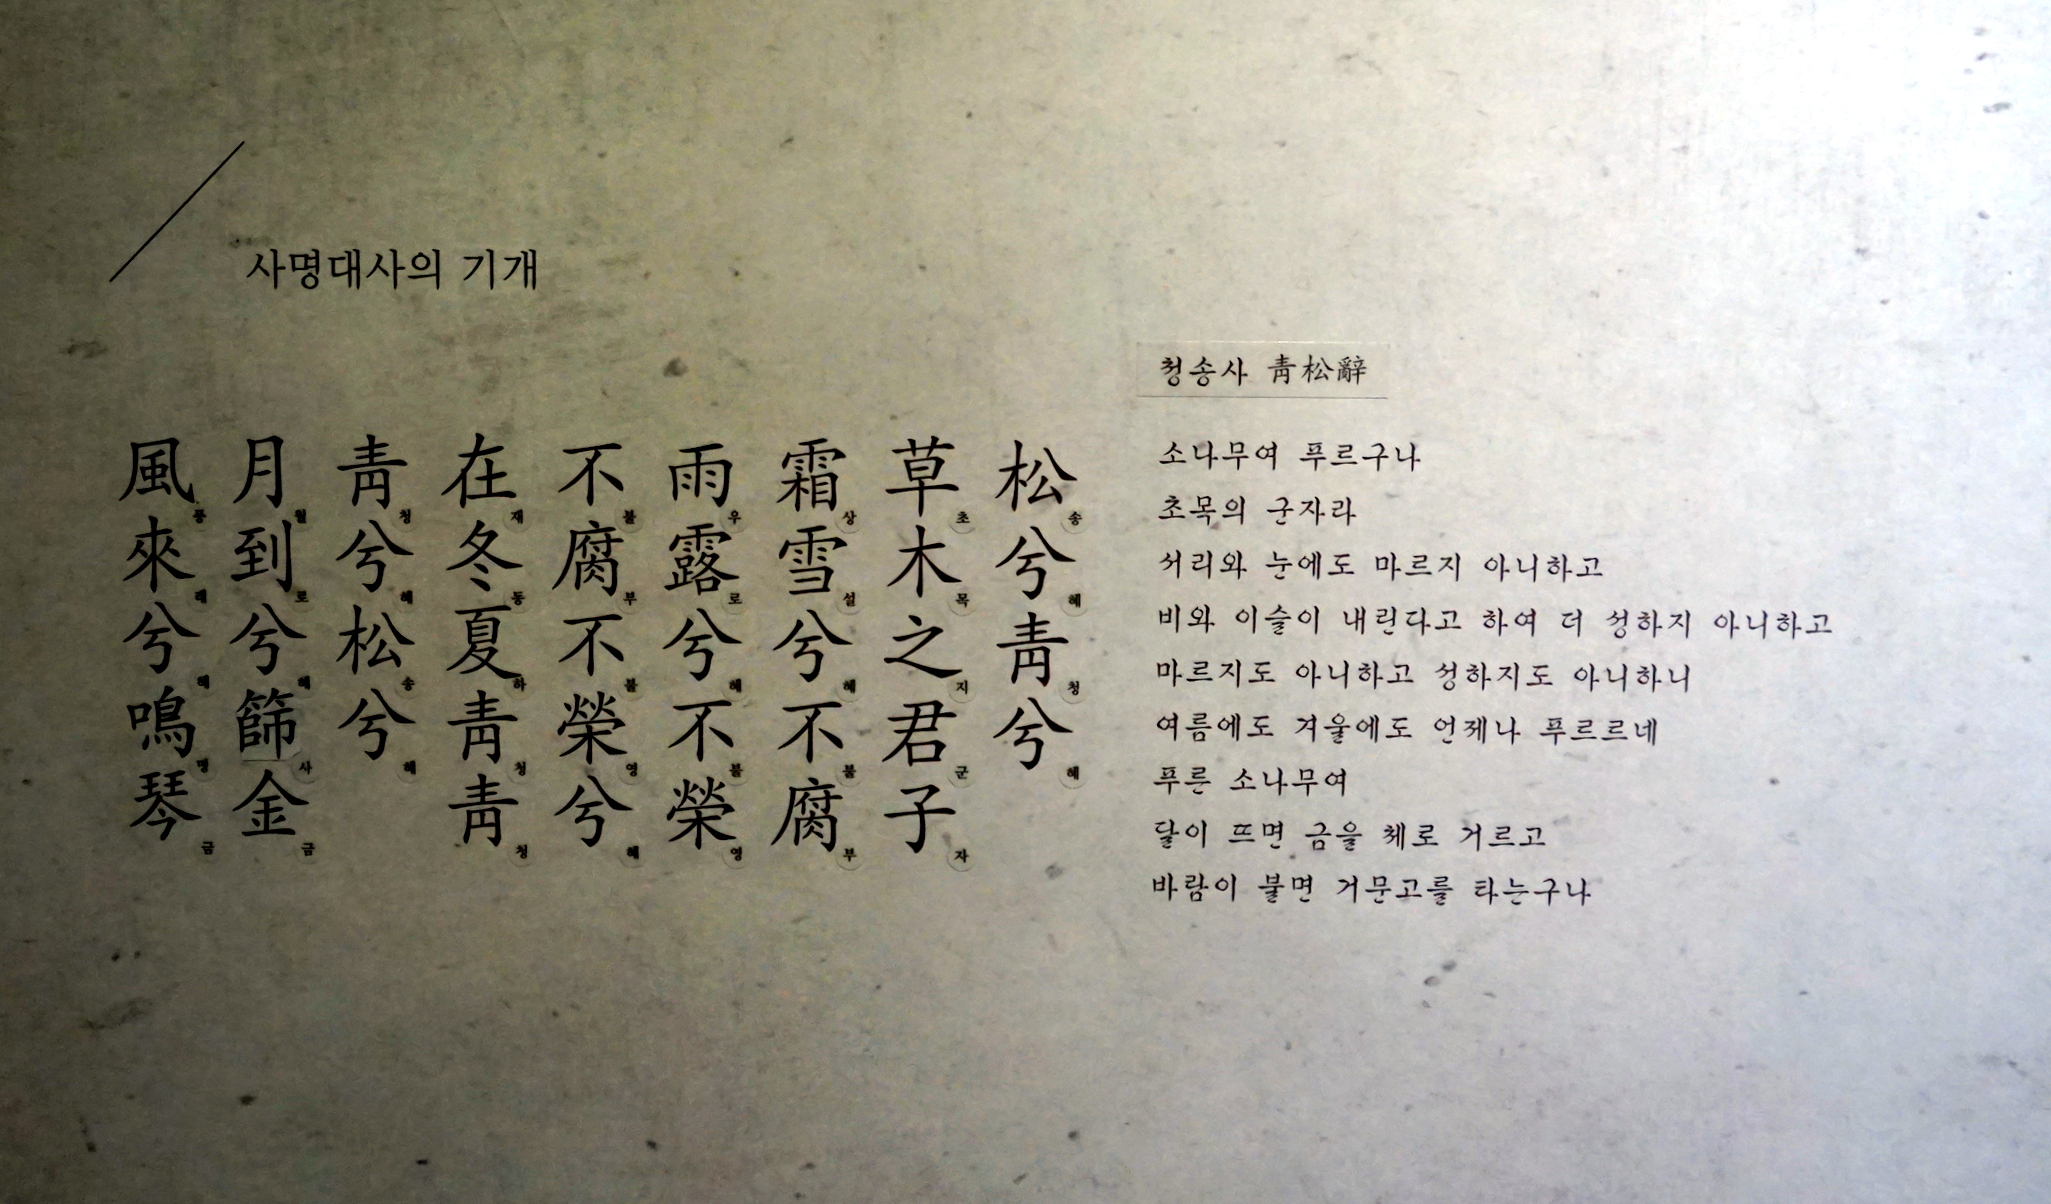 사명대사의 기개
松兮靑兮
송혜청혜
草木之君子
초목지군자
霜雪兮不腐
상설혜불부
雨露兮不榮
우로혜불영
不腐不榮兮
불부불영혜
在冬夏靑靑
재동하청청
靑兮松兮
청혜송혜
月到兮篩金
월도혜사금
風來兮鳴琴
풍래혜명금
청송사 靑松辭
소나무여 푸르구나
초목의 군자라
서리와 눈에도 마르지 아니하고
비와 이슬이 내린다고 하여 더 성하지 아니하고
마르지도 아니하고 성하지도 아니하니
여름에도 겨울에도 언제나 푸르르네
푸른 소나무여
달이 뜨면 금을 체로 거르고
바람이 불면 거문고를 타는구나